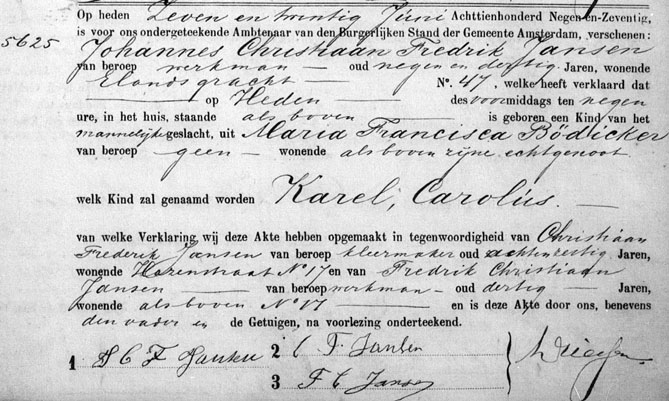 Op heden Zeven en twintig Juni Achttienhonderd Negen-en-Zeventig,
5625
is voor ons ondergeteekende Ambtenaar van den Burgerlijken Stand der Gemeente Amsterdam, verschenen:
Johannes Christiaan Fredrik Jansen
van beroep werkman oud negen en dertig Jaren, wonende
Elandsgracht N°. 47, welke heeft verklaard dat
op Heden des voormiddags ten negen
ure, in het huis, staande als boven is geboren een Kind van het
mannelijk geslacht, uit Maria Francisca Bödicker
van beroep geen wonende als boven zijne echtgenoot
welk Kind zal genaamd worden Karel, Carolus.
van welke Verklaring wij deze Akte hebben opgemaakt in tegenwoordigheid van Christiaan
Frederik Jansen van beroep kleermaker oud achtenzestig Jaren,
wonende Hazenstraat N° 17 en van Fredrik Christiaan
Jansen van beroep werkman oud dertig Jaren,
wonende als boven N° 17 en is deze Akte door ons, benevens
den vader en de Getuigen, na voorlezing onderteekend.
1 J C F Jansen 2 C F Jansen
3 F C Jansen